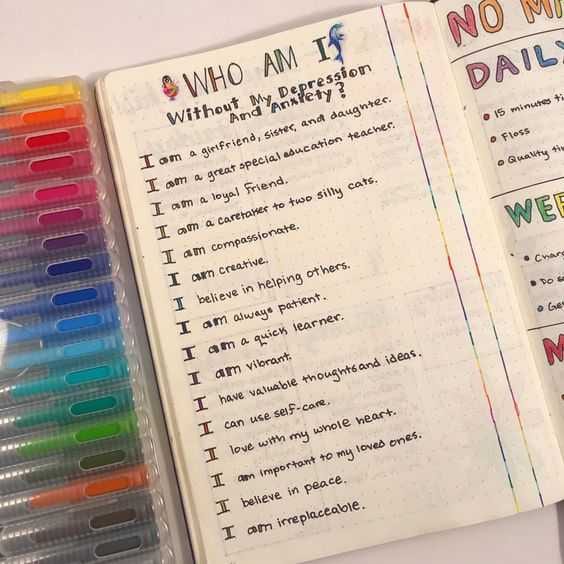 WHO AM I
Without My Depression
And Anxiety?
I am a girlfriend, sister, and daughter.
I am a great special education teacher.
I am a loyal friend.
I am a caretaker to two silly cats.
I am compassionate.
I am creative.
I believe in helping others.
I am always patient.
I am a quick learner.
I am vibrant.
I have valuable thoughts and ideas.
I can use self-care.
I love with my whole heart.
I am important to my loved ones.
I believe in peace.
I am irreplaceable.
NO
DAILY
15 minutes
Floss
Quality